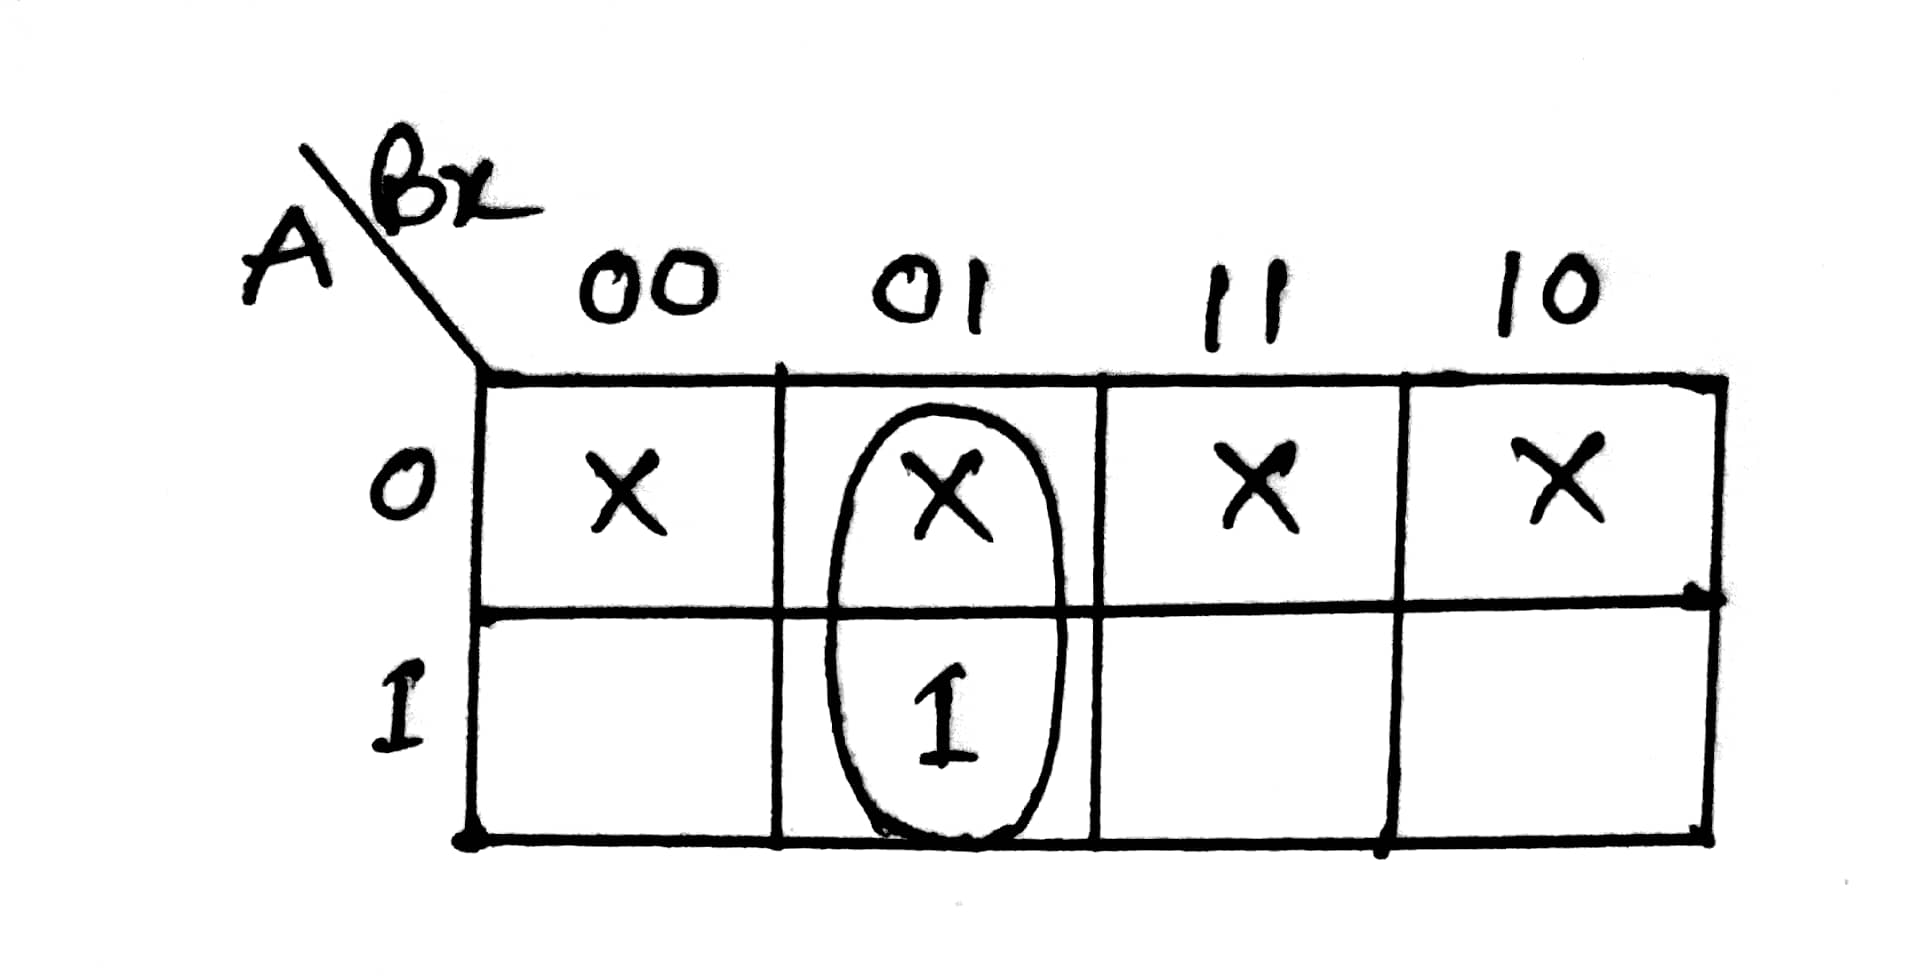 A Bx
00 01 11 10
0 X X X X
1 1